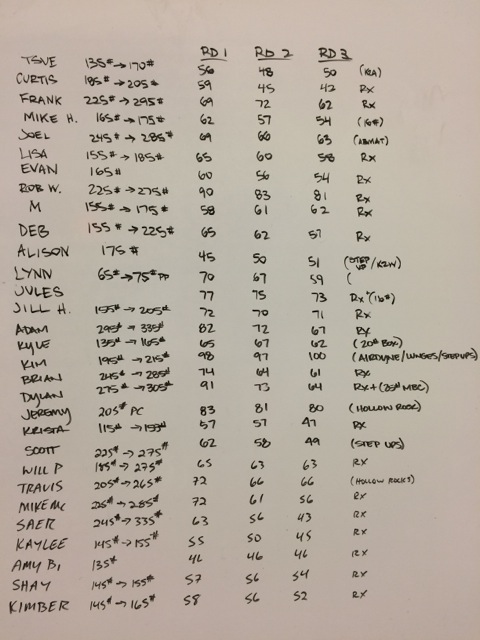 RD 1 RD 2 RD 3
TSUE 135# → 170# 56 48 50
CURTIS 185# → 205# 59 45 42 RX
FRANK 225# → 295# 69 72 62 RX
MIKE H. 165# → 175# 62 57 54 (16#)
JOEL 245# → 285# 69 66 63 (ABMAT)
LISA 155# → 185# 65 60 58 RX
EVAN 165# 60 56 54 RX
ROB W. 225# → 275# 90 83 81 RX
M 155# → 175# 58 61 62 RX
DEB 155# → 225# 65 62 57 RX
ALISON 175# 45 50 51 (STEP UP/K2W)
LYNN 65# → 75# PP 70 67 59 (
JULES 77 75 73 RX* (16#)
JILL H. 155# → 205# 72 70 71 RX
ADAM 295# → 335# 82 72 67 RX
KYLE 135# → 165# 65 67 62 (20" BOX)
KIM 195# → 215# 98 97 100 (AIRDYNE/LUNGES/STEPUPS)
BRIAN 245# → 285# 74 64 61 RX
DYLAN 275# → 305# 91 73 64 RX+ (25# MBC)
JEREMY 205# PC 83 81 80 (HOLLOW ROCK)
KRISTA 115# → 57 57 47 RX
SCOTT 225# → 275# 62 58 49 (STEP UPS)
WILL P 185# → 275# 65 63 63 RX
TRAVIS 205# → 265# 72 66 66 (HOLLOW ROCKS)
MIKE MC → 285# 72 61 56 RX
SAER 245# → 335# 63 56 43 RX
KAYLEE 145# → 155# 55 50 45 RX
AMY B. 135# 46 46 46 RX
SHAY 145# → 155# 57 56 54 RX
KIMBER 145# → 165# 58 56 52 RX